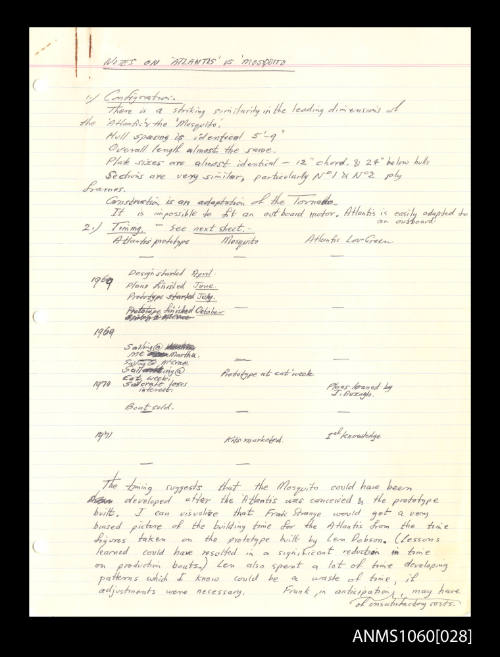 NOTES ON 'ATLANTIS' VS 'MOSQUITO'
1.) Configuration.
There is a striking similarity in the leading dimensions of
the 'Atlantis' & the 'Mosquito'.
Hull spacing is identical 5'-9"
Overall length almost the same.
Plate sizes are almost identical - 12" chord. & 24" below hull
Sections are very similar, particularly No 1 & No 2
frames.
Construction is an adaptation of the Tornado.
It is impossible to fit an outboard motor, Atlantis is easily adapted to
an outboard.
2.) Timing. - See next sheet. -
Atlantis prototype Mosquito Atlantis Len Green
1969 Design started April.
Plans finished June.
Prototype started July.
Prototype finished October
1969
Sailing @
Martha.
Sailing @ McCrae.
Sailing @
Cat week. Prototype at cat week
1970 loses Plans loaned by
interest. J.
Boat sold.
1971 Kits marketed. 1st knowledge
The timing suggests that the Mosquito could have been
developed after the Atlantis was conceived & the prototype
built. I can visualize that Frank Strange would get a very
biased picture of the building time for the Atlantis from the time
figures taken on the prototype built by Len Dobson. (Lessons
learned could have resulted in a significant reduction in time
on production boats.) Len also spent a lot of time developing
patterns which I know could be a waste of time, if
adjustments were necessary. Frank, in anticipation, may have
of unsatisfactory costs.
ANMS1060[028]